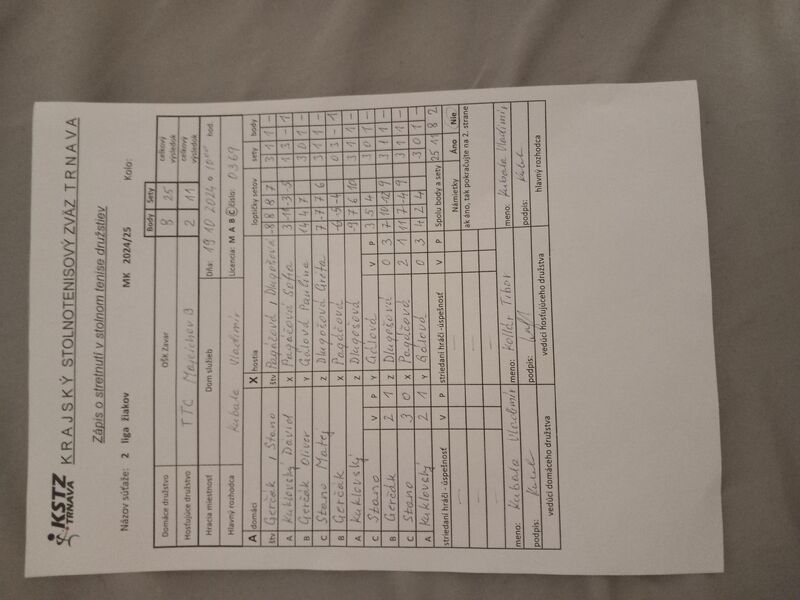 KSTZ
TRNAVA
KRAJSKÝ STOLNOTENISOVÝ ZVÄZ TRNAVA
Zápis o stretnutí v stolnom tenise družstiev
Názov súťaže: 2 liga žiakov MK 2024/25 Kolo:
Body Sety
Domáce družstvo OŠK Zavar 8 25 celkový výsledok
Hosťujúce družstvo TTC Majcichov B 2 11 celkový výsledok
Hracia miestnosť Dom služieb Dňa: 19.10.2024 o 10 hod.
Hlavný rozhodca Kubala Vladimír Licencia: M A B C číslo: 0369
A domáci X hostia loptičky setov sety body
štv Gerčák, Stano štv Pagáčová, Dlugošová -8 8 8 7 3 1 1 -
A Kuklovský David X Pagáčová Sofia 3 -11 -3 -5 1 3 - 1
B Gerčák Oliver Y Gálová Paulína 14 4 7 3 0 1 -
C Stano Matej Z Dlugošová Greta 7 -7 7 6 3 1 1 -
B Gerčák X Pagáčová -6 -9 -4 0 3 - 1
A Kuklovský Z Dlugošová -9 7 6 10 3 1 1 -
C Stano V P Y Gálová V P 3 5 4 3 0 1 -
B Gerčák 2 1 Z Dlugošová 0 3 7 -10 12 9 3 1 1 -
C Stano 3 0 X Pagáčová 2 1 11 7 -4 9 3 1 1 -
A Kuklovský 2 1 Y Gálová 0 3 4 2 4 3 0 1 -
striedaní hráči - úspešnosť V P striedaní hráči - úspešnosť V P Spolu body a sety 25 11 8 2
Námietky Áno Nie
ak áno, tak pokračujte na 2. strane
meno: Kubala Vladimír meno: Kollár Tibor meno: Kubala Vladimír
podpis: podpis: podpis:
vedúci domáceho družstva vedúci hosťujúceho družstva hlavný rozhodca